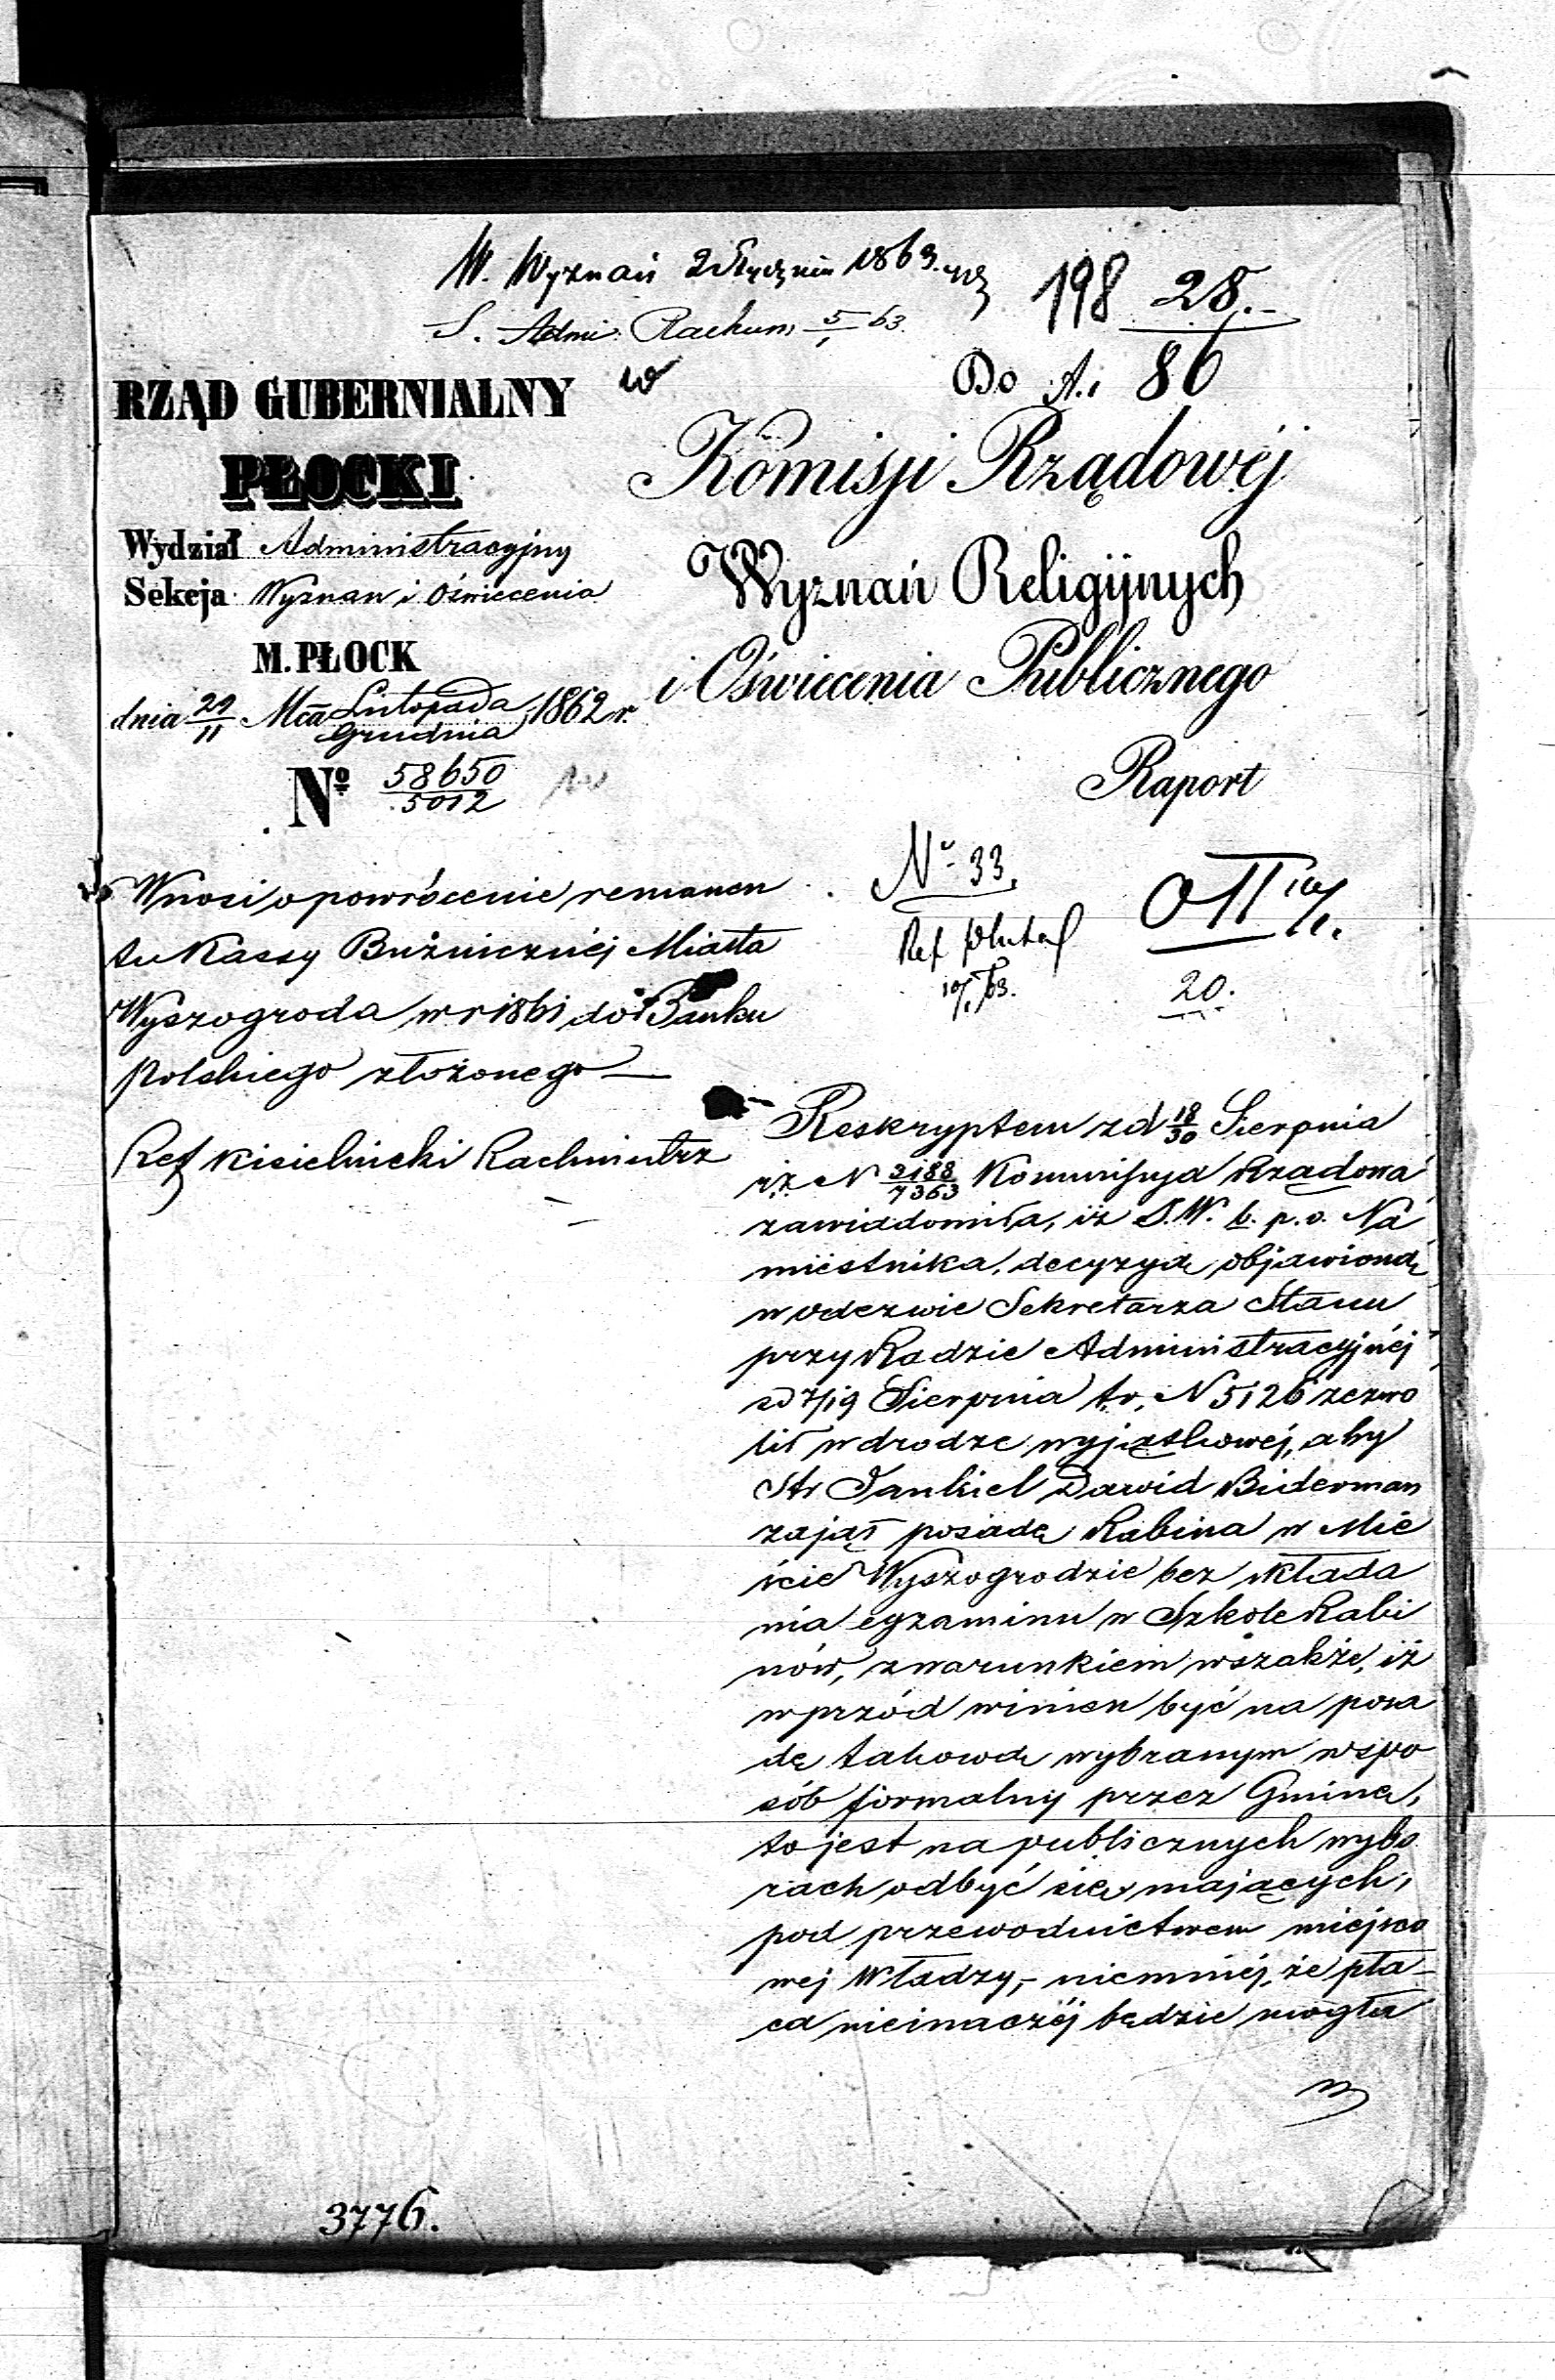 W. Wyznań 2 Stycznia 1863.
S. Admi: Rachun, 5/1 63.
198 28.
86
Do
RZĄD GUBERNIALNY
PŁOCKI
Komisji Rządowéj
Wydział Administracyjny
Sekcja Wyznan i Oświecenia
Wyznań Religijnych
M. PŁOCK
i Oświecenia Publicznego
dnia 29/11 Mca Listopada/Grudnia 1862 r.
Nº 58650/5012
Raport
Wnosi o powrócenie remanen
tu Kassy Bużniczniéj Miasta
Wyszogroda w r 1861 do Banku
Polskiego złożonego
Ref Kisielnicki Rachmistrz
Nº 33.
Ref
10/1 63.
20.
Reskryptem z d 18/30 Sierpnia
r.z. N 3188/7363 Kommissya Rządowa
zawiadomiła, iż J.W. b. p.o. Na
miestnika, decyzyą objawioną
w odezwie Sekretarza Stanu
przy Radzie Administracyjnéj
z d 7/19 Sierpnia t.r. N 5126 zezwo
lił w drodze wyjątkowéj, aby
St. Jankiel Dawid Biderman
zajął posadę Rabina w Mie
ście Wyszogrodzie bez składa
nia egzaminu w Szkole Rabi
nów, z warunkiem wszakże, iż
wprzód winien być na posa
dę takową wybranym w spo
sób formalny przez Gminę,
to jest na publicznych wybo
rach odbyć się mających,
pod przewodnictwem miejsco
wej Władzy,- niemniéj, że pła-
ca nieinaczéj będzie mogła
3776.